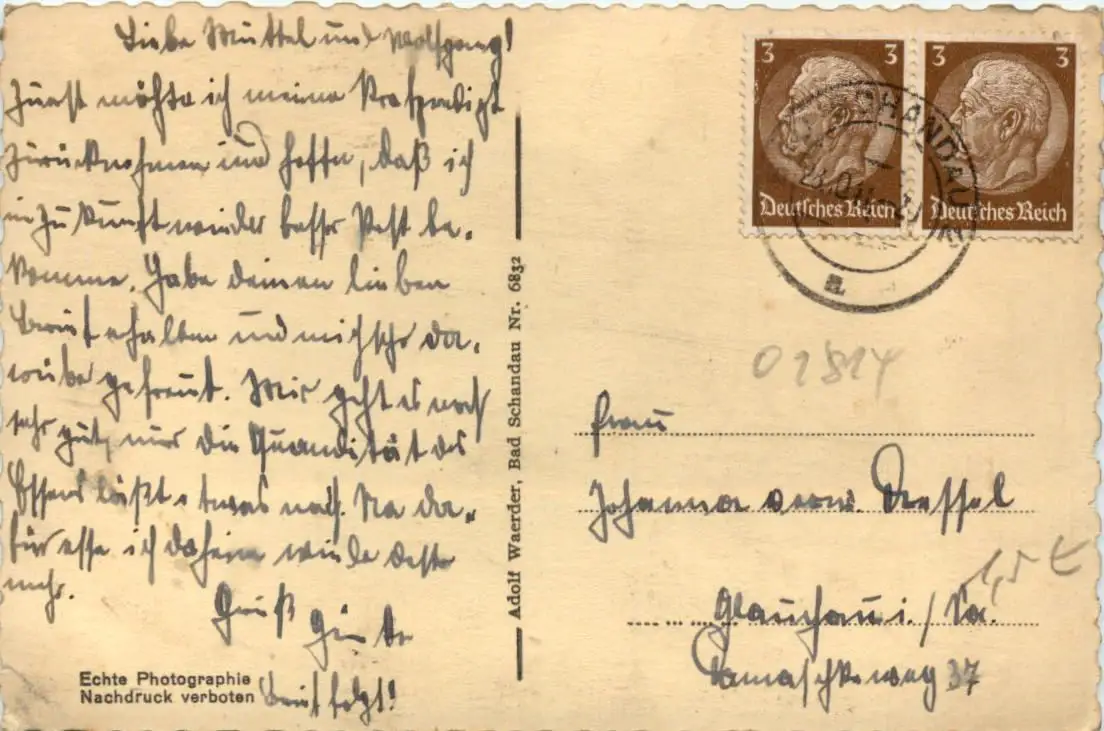 Liebe Muttel und Wolfgang!
Zuerst möchte ich meine
zurücknehmen und hoffe, daß ich
in Zukunft wieder besser Post be-
komme. Habe deinen lieben
Brief erhalten und mich sehr da-
rüber gefreut. Mir geht es noch
sehr gut, nur die Quandität des
Essens läßt etwas nach. Na da-
für esse ich daheim wieder desto
mehr.
Gruß
Günter
Brief folgt!
Echte Photographie
Nachdruck verboten
Adolf Waerder, Bad Schandau Nr. 6832
3 3
Deutsches Reich
3 3
Deutsches Reich
SCHANDAU
a
01814
Frau
Johanna verw. Dressel
1,5 €
Glauchau i./Sa.
Damaschkeweg 37